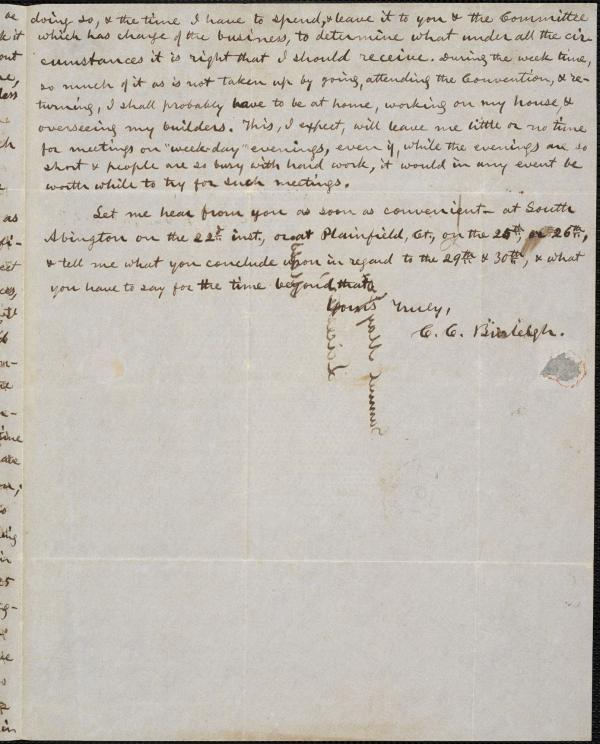 doing so, & the time I have to spend, & leave it to you & the Committee
which has charge of the business, to determine what under all the cir
cumstances it is right that I should receive. During the week time,
so much of it as is not taken up by going, attending the Convention, & re-
turning, I shall probably have to be at home, working on my house, &
overseeing my builders. This, I expect, will leave me little or no time
for meetings on "week-day" evenings, even if, while the evenings are so
short & people are so busy with hard work, it would in any event be
worth while to try for such meetings.
Let me hear from you as soon as convenient— at South
Abington on the 22d inst, or at Plainfield, Ct, on the 25th, or 26th,
& tell me what you conclude upon in regard to the 29th & 30th, & what
you have to say for the time beyond that.
Yours Truly,
C. C. Burleigh.
Samuel May